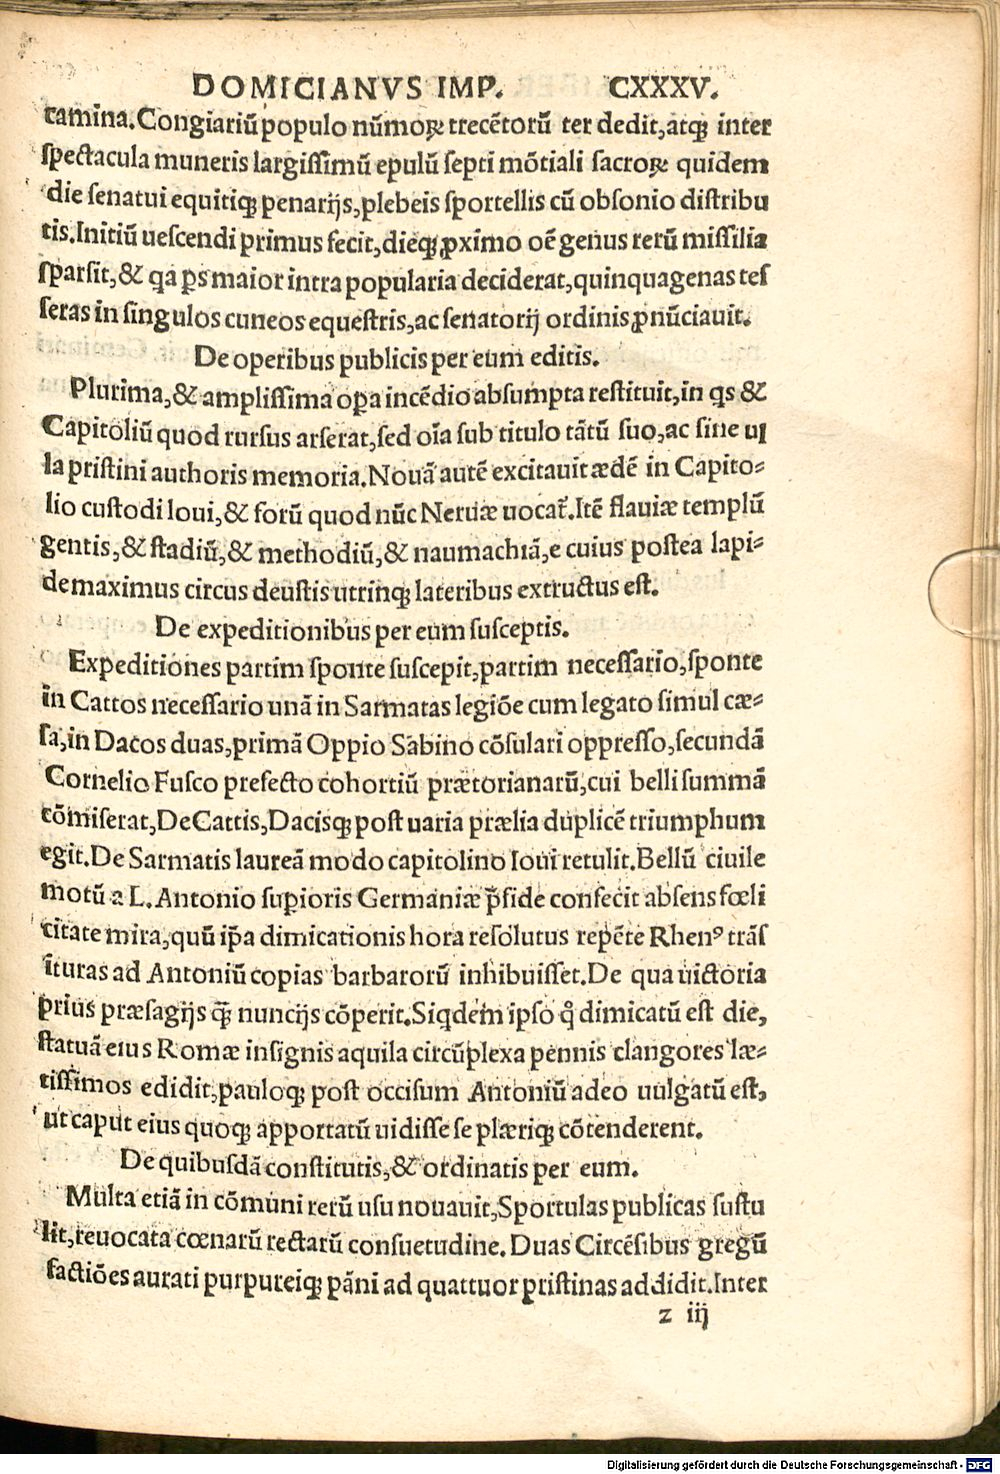 DOMICIANVS IMP. CXXXV.
tamina. Congiariũ populo nũmoꝝ trecẽtorũ ter dedit, atqꝫ inter
spectacula muneris largissimũ epulũ septi mõtiali sacroꝝ quidem
die senatui equitiqꝫ penarijs, plebeis sportellis cũ obsonio distribu
tis. Initiũ uescendi primus fecit, dieqꝫ ꝓximo oẽ genus rerũ missilia
sparsit, & qa ꝑs maior intra popularia deciderat, quinquagenas tes
seras in singulos cuneos equestris, ac senatorij ordinis ꝓnũciauit.
De operibus publicis per eum editis.
Plurima, & amplissima oꝑa incẽdio absumpta restituit, in qs &
Capitoliũ quod rursus arserat, sed oĩa sub titulo tãtũ suo, ac sine ul
la pristini authoris memoria. Nouã autẽ excitauit ædẽ in Capito⸗
lio custodi Ioui, & forũ quod nũc Neruæ uocat᷑. Itẽ flauiæ templũ
gentis, & stadiũ, & methodiũ, & naumachiã, e cuius postea lapi⸗
de maximus circus deustis utrinqꝫ lateribus extructus est.
De expeditionibus per eum susceptis.
Expeditiones partim sponte suscepit, partim necessario, sponte
in Cattos necessario unã in Sarmatas legiõe cum legato simul cæ⸗
sa, in Dacos duas, primã Oppio Sabino cõsulari oppresso, secundã
Cornelio Fusco prefecto cohortiũ prætorianarũ, cui belli summã
cõmiserat, De Cattis, Dacisqꝫ post uaria prælia duplicẽ triumphum
egit. De Sarmatis laureã modo capitolino Ioui retulit. Bellũ ciuile
motũ a L. Antonio suꝑioris Germaniæ p̃side confecit absens fœli
citate mira, quũ ip̃a dimicationis hora resolutus repẽte Rhenꝰ trãs
ituras ad Antoniũ copias barbarorũ inhibuisset. De qua uictoria
prius præsagijs q̃ꝫ nuncijs cõperit. Siqdem ipso q̊ dimicatũ est die,
statuã eius Romæ insignis aquila circũplexa pennis clangores læ⸗
tissimos edidit, pauloqꝫ post occisum Antoniũ adeo uulgatũ est,
ut caput eius quoqꝫ apportatũ uidisse se plæriqꝫ cõtenderent.
De quibusdã constitutis, & ordinatis per eum.
Multa etiã in cõmuni rerũ usu nouauit, Sportulas publicas sustu
lit, reuocata cœnarũ rectarũ consuetudine. Duas Circẽsibus gregũ
factiões aurati purpureiqꝫ pãni ad quattuor pristinas addidit. Inter
z iij
Digitalisierung gefördert durch die Deutsche Forschungsgemeinschaft - DFG